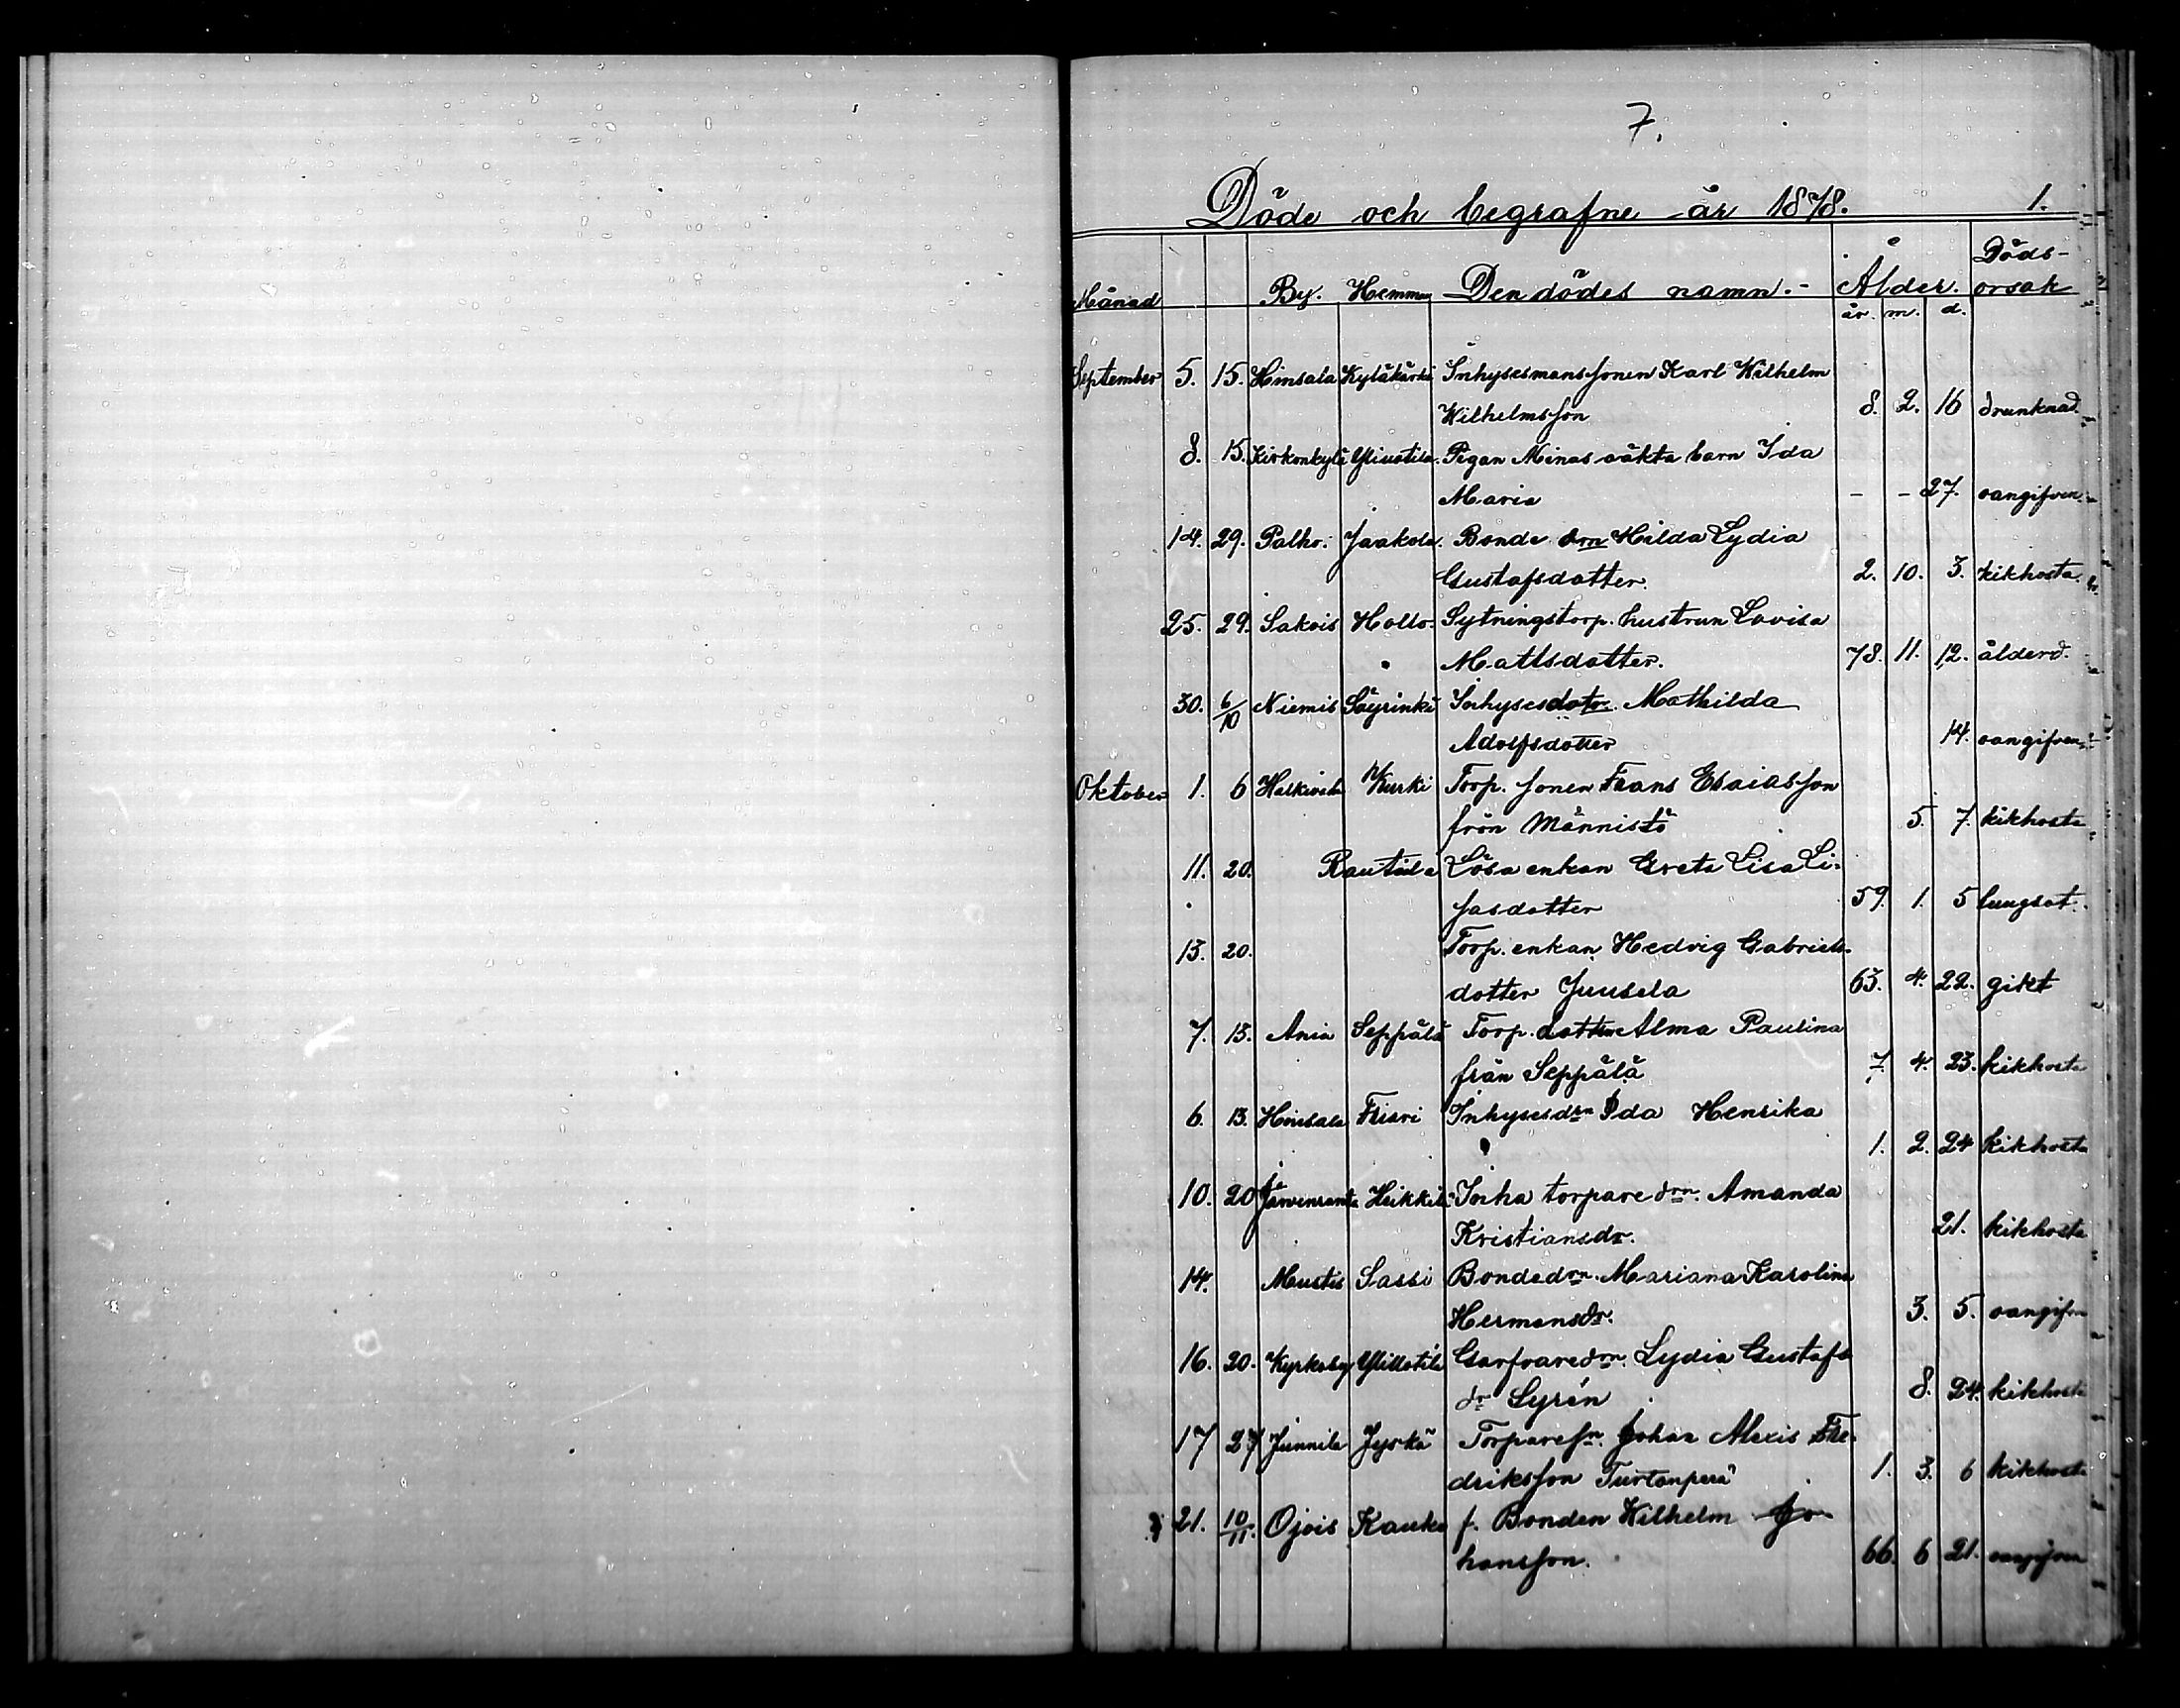 7.
Döde och begrafne år 1878. 1.
Månad By. Hemman Den dödes namn.- Ålder. Döds-orsak
år. m. d.
September 5. 15. Hinsala Kyläkärki Inhysesmanssonen Karl Wilhelm
Wilhelmsson 8. 2. 16 drunknad.
8. 15. Kirkonkylä Yliuotila. Pigan Minas oäkta barn Ida
Maria - - 27. oangifven.
14. 29. Palho. Jaakola. Bonde drn Hilda Lydia
Gustafsdotter. 2. 10. 3. kikhosta.
25. 29. Sakois Hollo. Sytningstorp. hustrun Lovisa
Mattsdotter. 78. 11. 12. ålderd.
30. 6/10 Niemis Säyrinki Inhysesdotr. Mathilda
Adolfsdotter 14. oangifven.
Oktober 1. 6 Kurki Torp. sonen Frans Esaiasson
från Männistö 5. 7. kikhosta
11. 20. Rautila Lösa enkan Greta Lisa Li-
sasdotter 59. 1. 5 lungsot.
13. 20. Torp. enkan Hedvig Gabriels-
dotter Juusela 63. 4. 22. gikt
7. 13. Ania Seppälä Torp. dottern Alma Paulina
från Seppälä 7. 4. 23. kikhosta
6. 13. Hinsala Friari Inhysesdrn Ida Henrika
1. 2. 24 kikhosta
10. 20 Järvenranta Heikkilä Inha torpare drn. Amanda
Kristiansdr. 21. kikhosta
14. Mustis Sassi Bondedrn. Mariana Karolina
Hermansdr. 3. 5. oangifven
16. 20. Kyrkoby Yliuotila Garfvaredrn. Lydia Gustafs
dr Syrén 8. 24. kikhosta
17 27 Junnila Jyrkä Torparesn. Johan Alexis Fre-
driksson Turtanperä 1. 3. 6 kikhosta
21. 10/11. Ojois Kauko f. Bonden Wilhelm Jo-
hansson. 66. 6 21. oangifven